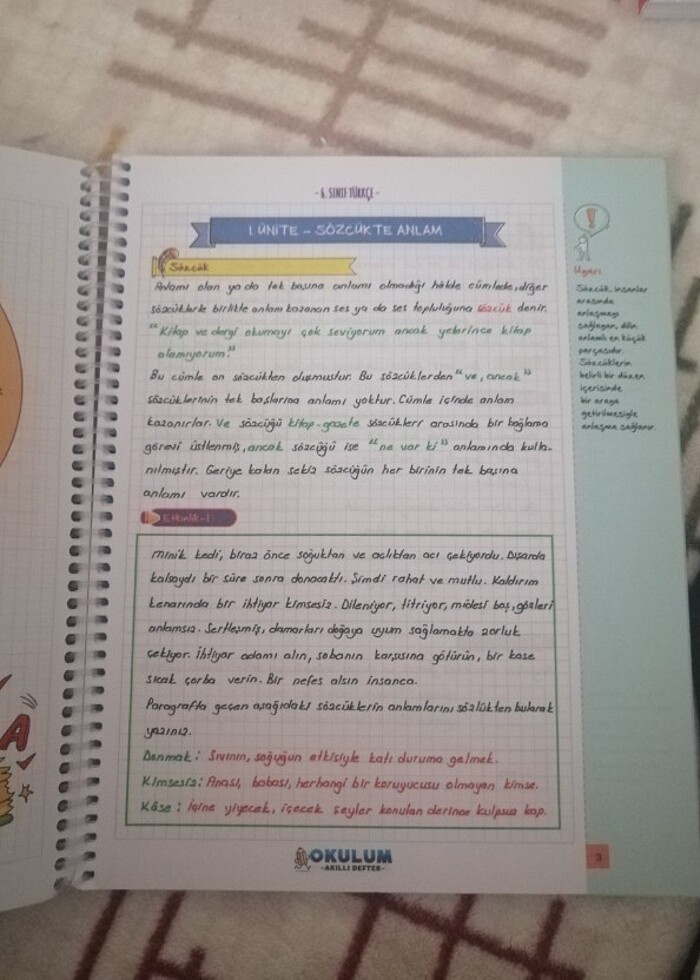 - 6. SINIF TÜRKÇE -
1. ÜNİTE - SÖZCÜKTE ANLAM
Sözcük
Anlamı olan ya da tek başına anlamı olmadığı hâlde cümlede, diğer
sözcüklerle birlikte anlam kazanan ses ya da ses topluluğuna sözcük denir.
"Kitap ve dergi okumayı çok seviyorum ancak yeterince kitap
alamıyorum."
Bu cümle on sözcükten oluşmuştur. Bu sözcüklerden "ve, ancak"
sözcüklerinin tek başlarına anlamı yoktur. Cümle içinde anlam
kazanırlar. Ve sözcüğü kitap-gazete sözcükleri arasında bir bağlama
görevi üstlenmiş, ancak sözcüğü ise "ne var ki" anlamında kulla-
nılmıştır. Geriye kalan sekiz sözcüğün her birinin tek başına
anlamı vardır.
Etkinlik-1
Minik kedi, biraz önce soğuktan ve açlıktan acı çekiyordu. Dışarda
kalsaydı bir süre sonra donacaktı. Şimdi rahat ve mutlu. Kaldırım
kenarında bir ihtiyar kimsesiz. Dileniyor, titriyor, midesi boş, gözleri
anlamsız. Sertleşmiş, damarları doğaya uyum sağlamakta zorluk
çekiyor. İhtiyar adamı alın, sobanın karşısına götürün, bir kase
sıcak çorba verin. Bir nefes alsın insanca.
Paragrafta geçen aşağıdaki sözcüklerin anlamlarını sözlükten bularak
yazınız.
Donmak: Sıvının, soğuğun etkisiyle katı duruma gelmek.
Kimsesiz: Anası, babası, herhangi bir koruyucusu olmayan kimse.
Kâse: İçine yiyecek, içecek şeyler konulan derince kulpsuz kap.
OKULUM
-AKILLI DEFTER-
Uyarı
Sözcük, insanlar
arasında
anlaşmayı
sağlayan, dilin
anlamlı en küçük
parçasıdır.
Sözcüklerin
belirli bir düzen
içerisinde
bir araya
getirilmesiyle
anlaşma sağlanır.
3
A